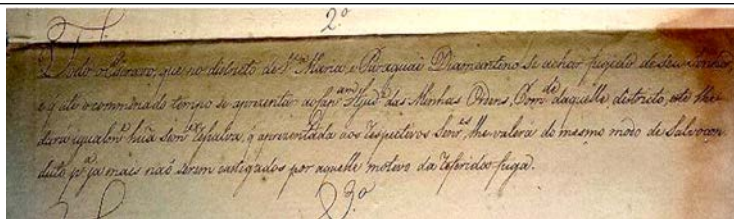 2.º
Todo o Escravo, que no districto de V.ª Maria e Paraguai Diamantino se achar fugido de seu Senhor,
e q̃ até o comminado termo se aprezentar ao Cap.am das Minhas Ordens, Com.de daquelle districto, este lhe
dara igualm.e huã resalva, q̃ aprezentada aos respectivos Senr.es, lhe valera do mesmo modo de Salvocon
duto p.ª ja mais naõ serem castigados por aquelle motivo da referida fuga.
3.º